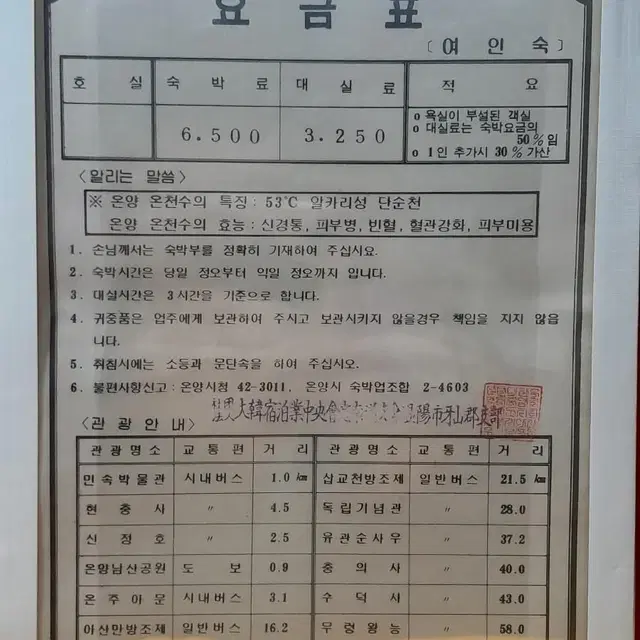 요 금 표
〔여 인 숙〕
호 실 숙 박 료 대 실 료 적 요
6.500 3.250
o 욕실이 부설된 객실
o 대실료는 숙박요금의
50%임
o 1인 추가시 30%가산
<알리는 말씀>
※ 온양 온천수의 특징 : 53℃ 알카리성 단순천
온양 온천수의 효능 : 신경통, 피부병, 빈혈, 혈관강화, 피부미용
1. 손님께서는 숙박부를 정확히 기재하여 주십시요.
2. 숙박시간은 당일 정오부터 익일 정오까지 입니다.
3. 대실시간은 3시간을 기준으로 합니다.
4. 귀중품은 업주에게 보관하여 주시고 보관시키지 않을경우 책임을 지지 않읍
니다.
5. 취침시에는 소등과 문단속을 하여 주십시오.
6. 불편사항신고 : 온양시청 42-3011, 온양시 숙박업조합 2-4603
大韓宿泊業中央會 陽市牙山郡支部
<관광안내>
관광명소 교통편 거 리 관광명소 교통편 거 리
민속박물관 시내버스 1.0㎞ 삽교천방조제 일반버스 21.5㎞
현 충 사 〃 4.5 독립기념관 〃 28.0
신 정 호 〃 2.5 유관순사우 〃 37.2
온양남산공원 도 보 0.9 충 의 사 〃 40.0
온 주 아 문 시내버스 3.1 수 덕 사 〃 43.0
아산만방조제 일반버스 16.2 무 령 왕 능 〃 58.0